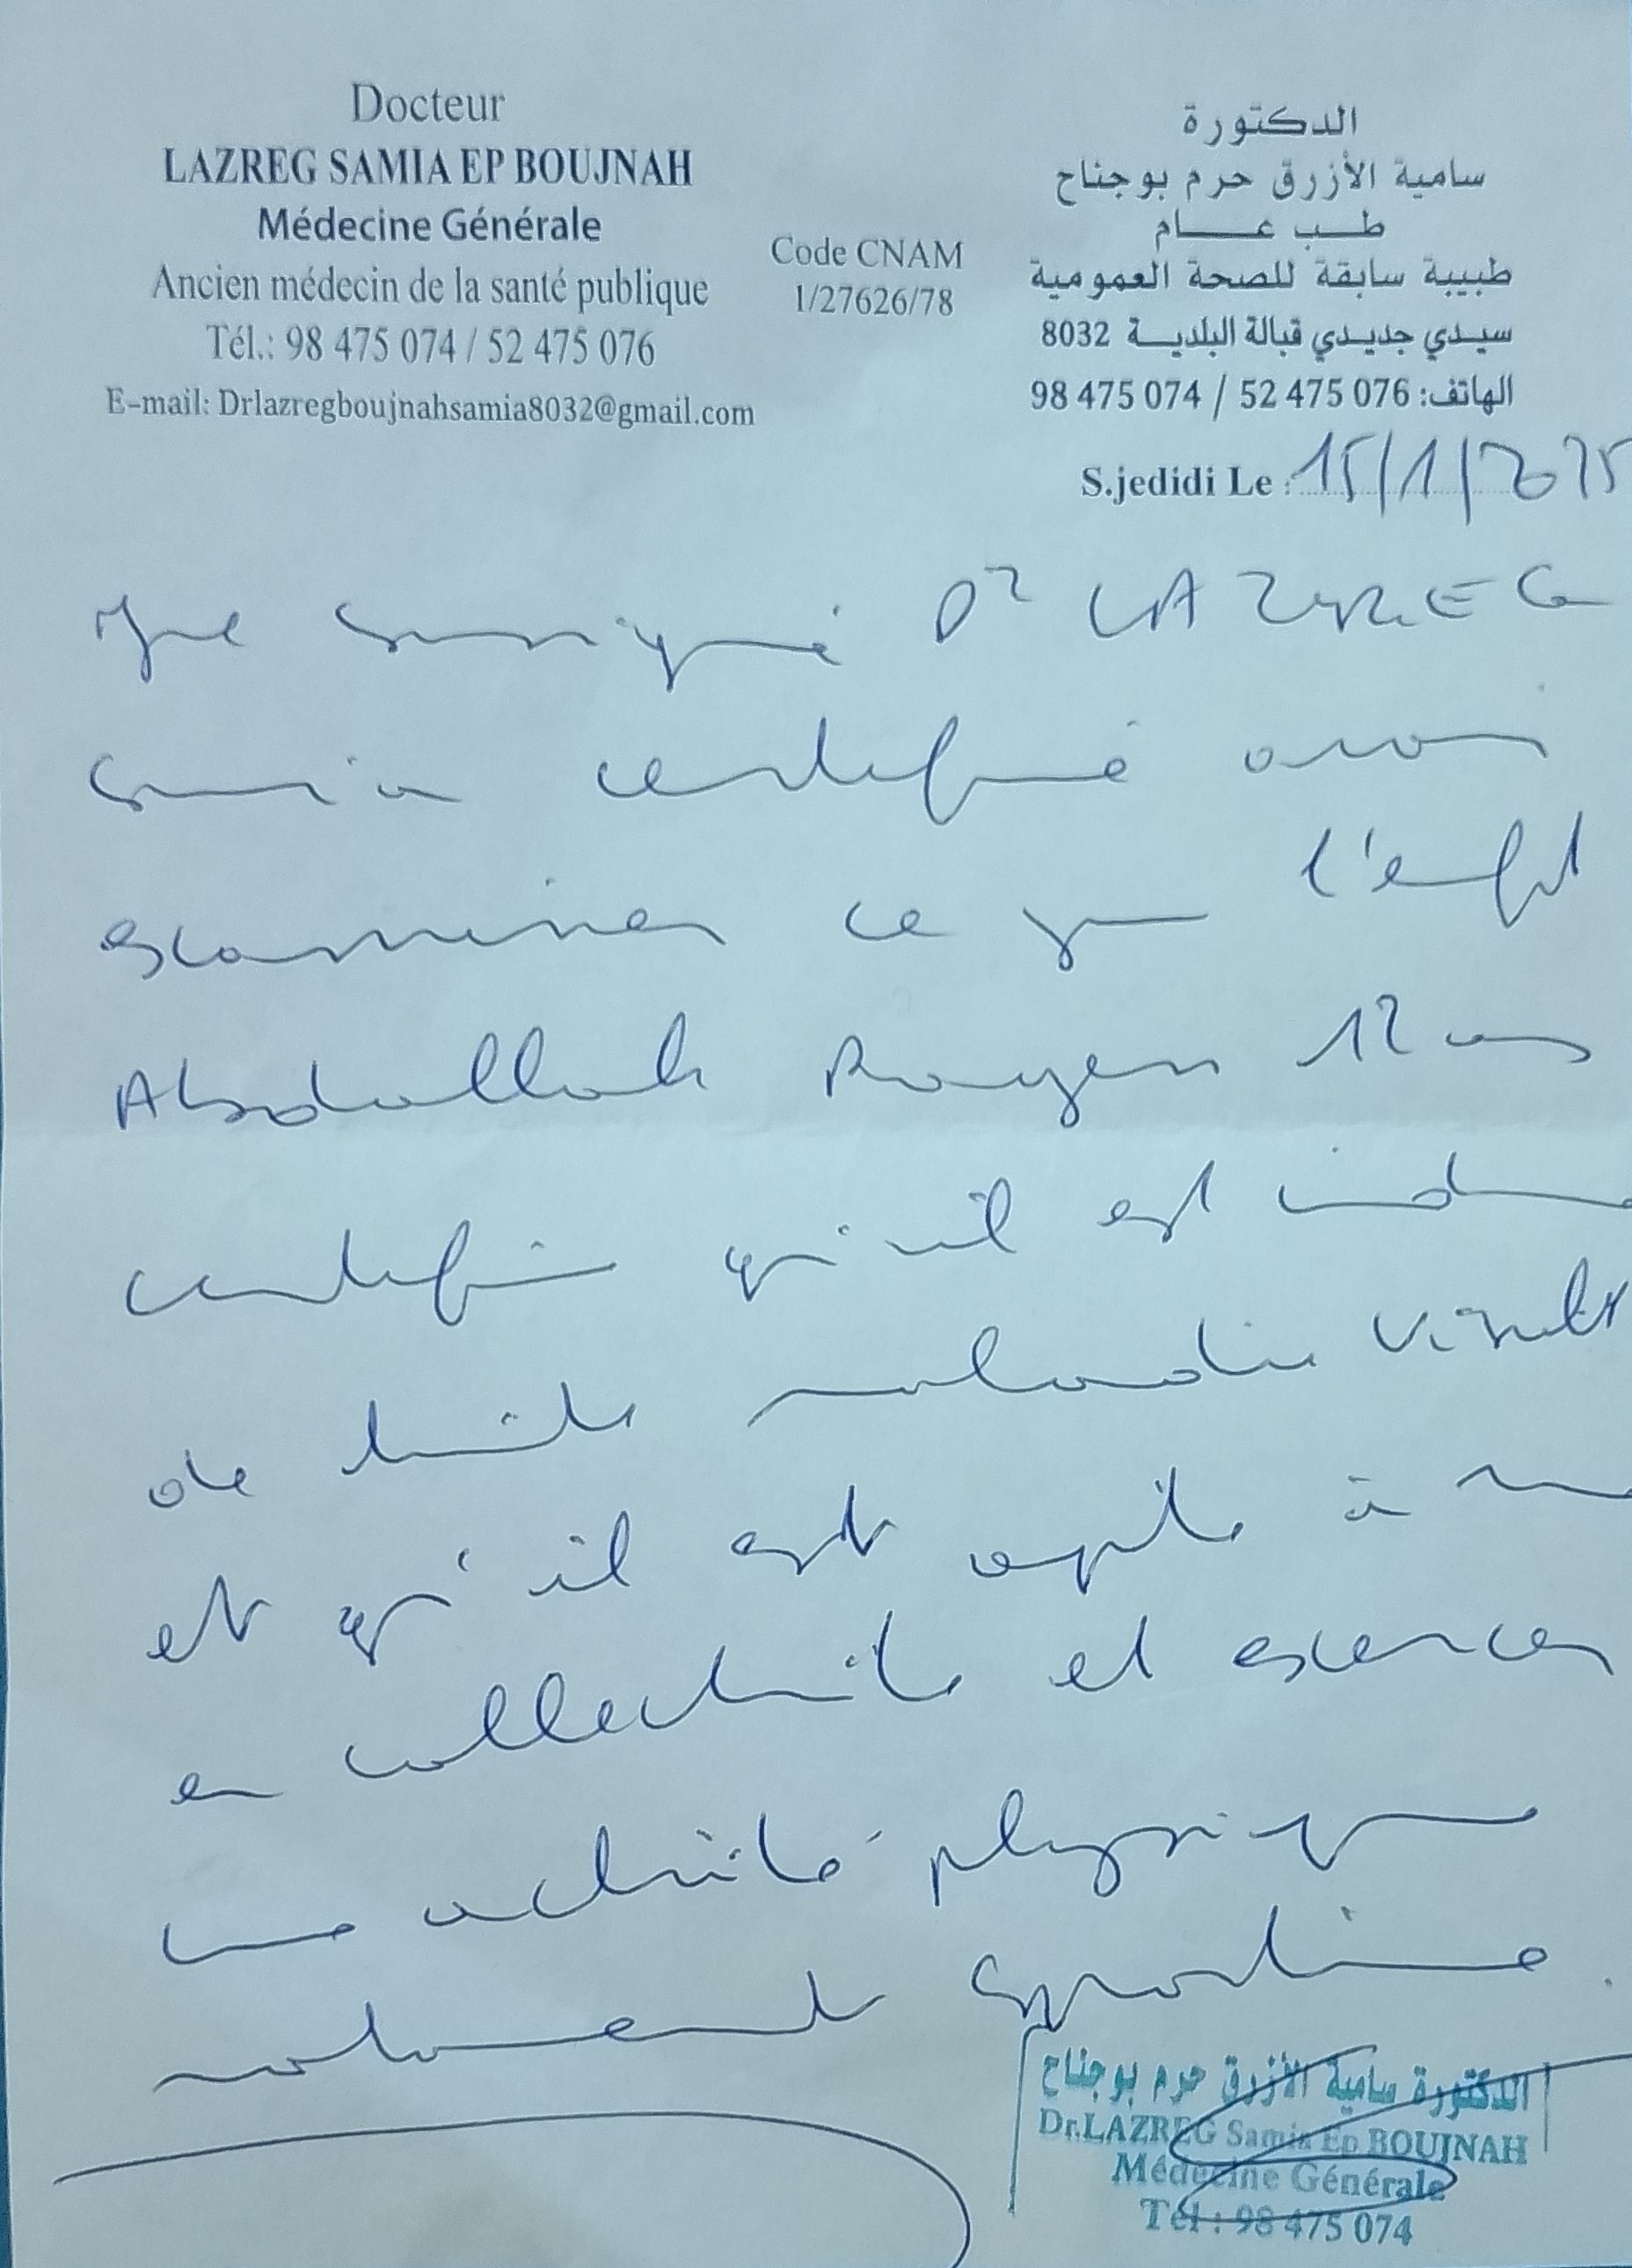 Docteur
LAZREG SAMIA EP BOUJNAH
Médecine Générale
Ancien médecin de la santé publique
Tél.: 98 475 074 / 52 475 076
E-mail: Drlazregboujnahsamia8032@gmail.com
Code CNAM
1/27626/78
الدكتورة
سامية الأزرق حرم بوجناح
طب عام
طبيبة سابقة للصحة العمومية
سيدي جديدي قبالة البلدية 8032
الهاتف: 98 475 074 / 52 475 076
S.jedidi Le : 15/1/2025
Je soussigné Dr LAZREG
Samia certifié avoir
examiner ce jour l'enfant
Abdallah Rayen 12 ans
certifie qu'il est indemne
de toute maladie visible
et qu'il est apte à
en collectivité et exercer
une activité physique
notamment sportive.
الدكتورة سامية الأزرق حرم بوجناح
Dr.LAZREG Samia Ep BOUJNAH
Médecine Générale
Tél : 98 475 074